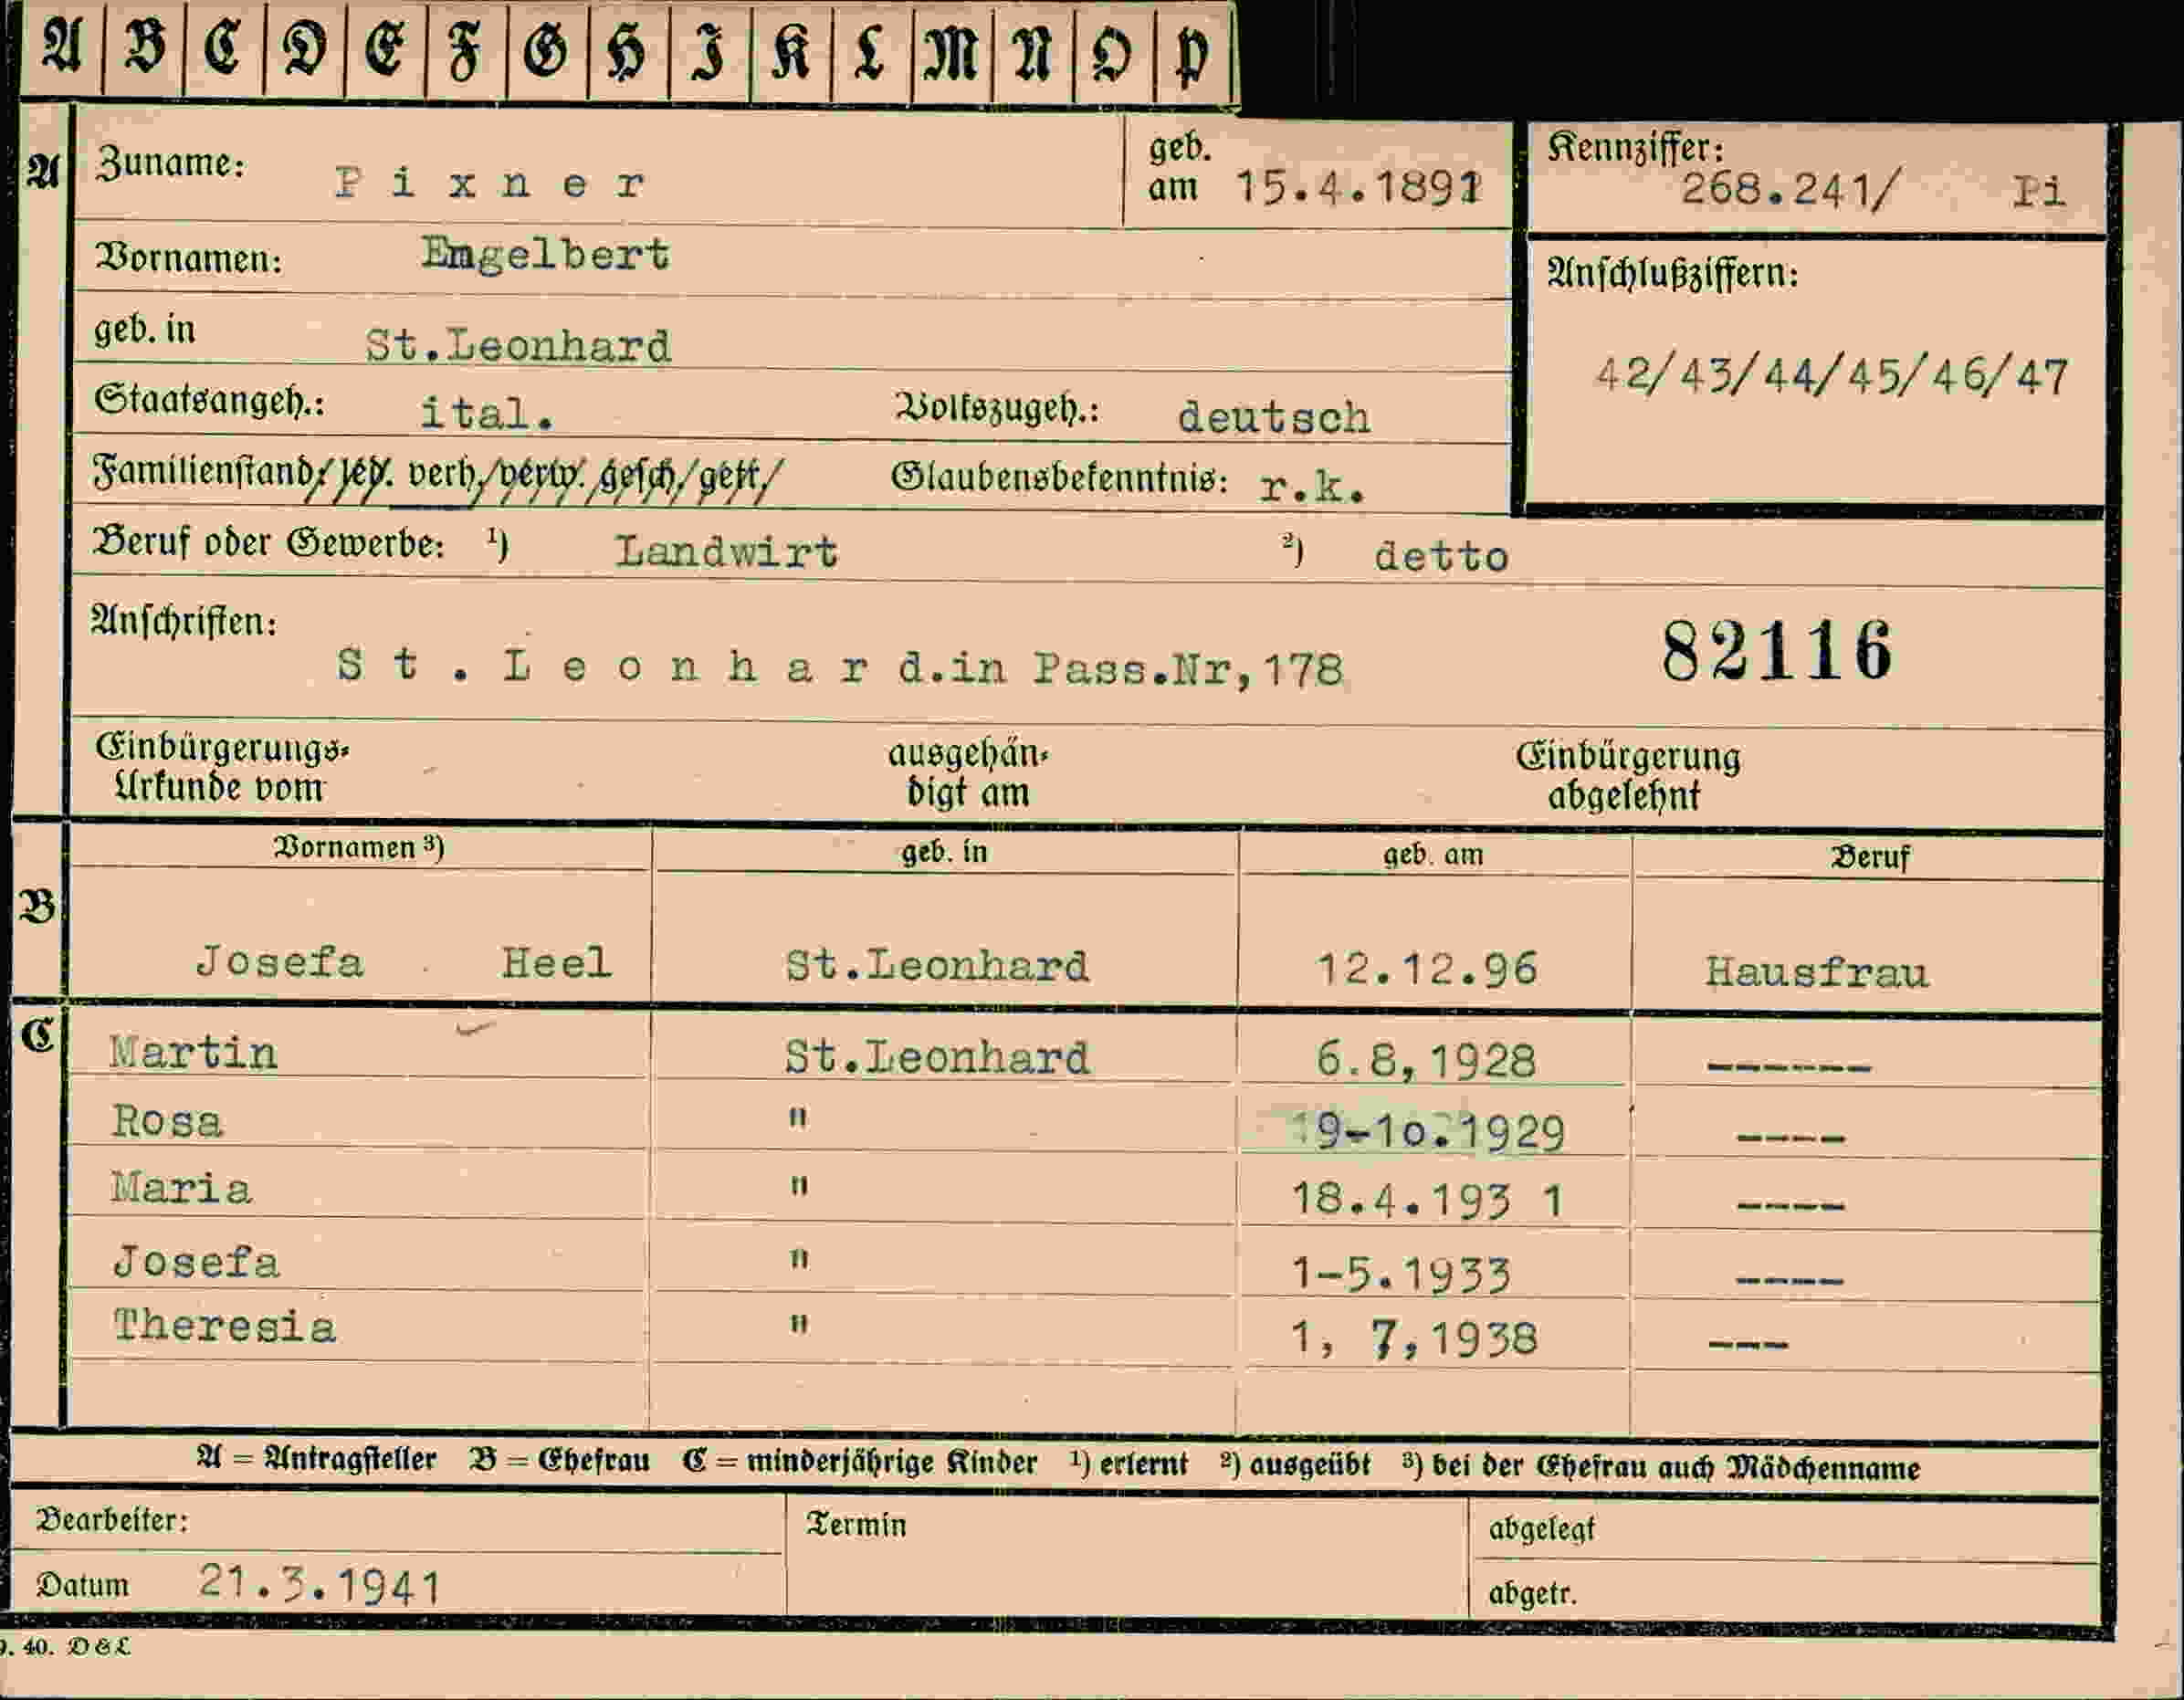 A B C D E F G H I K L M N O P
A Zuname: Pixner geb. am 15.4.1891 Kennziffer: 268.241/ Pi
Vornamen: Engelbert
Anschlußziffern:
geb. in St.Leonhard
42/43/44/45/46/47
Staatsangeh.: ital. Volkszugeh.: deutsch
Familienstand/ led. verh./verw. gesch/getr/ Glaubensbekenntnis: r.k.
Beruf oder Gewerbe: ¹) Landwirt ²) detto
Anschriften:
St.Leonhard.in Pass.Nr,178 82116
Einbürgerungs- ausgehän- Einbürgerung
Urkunde vom digt am abgelehnt
Vornamen ³) geb. in geb. am Beruf
B
Josefa Heel St.Leonhard 12.12.96 Hausfrau
C Martin St.Leonhard 6.8,1928 ------
Rosa " 19-10.1929 ----
Maria " 18.4.193 1 ----
Josefa " 1-5.1933 ----
Theresia " 1, 7,1938 ---
A = Antragsteller B = Ehefrau C = minderjährige Kinder ¹) erlernt ²) ausgeübt ³) bei der Ehefrau auch Mädchenname
Bearbeiter: Termin abgelegt
Datum 21.3.1941 abgetr.
9. 40. D&L